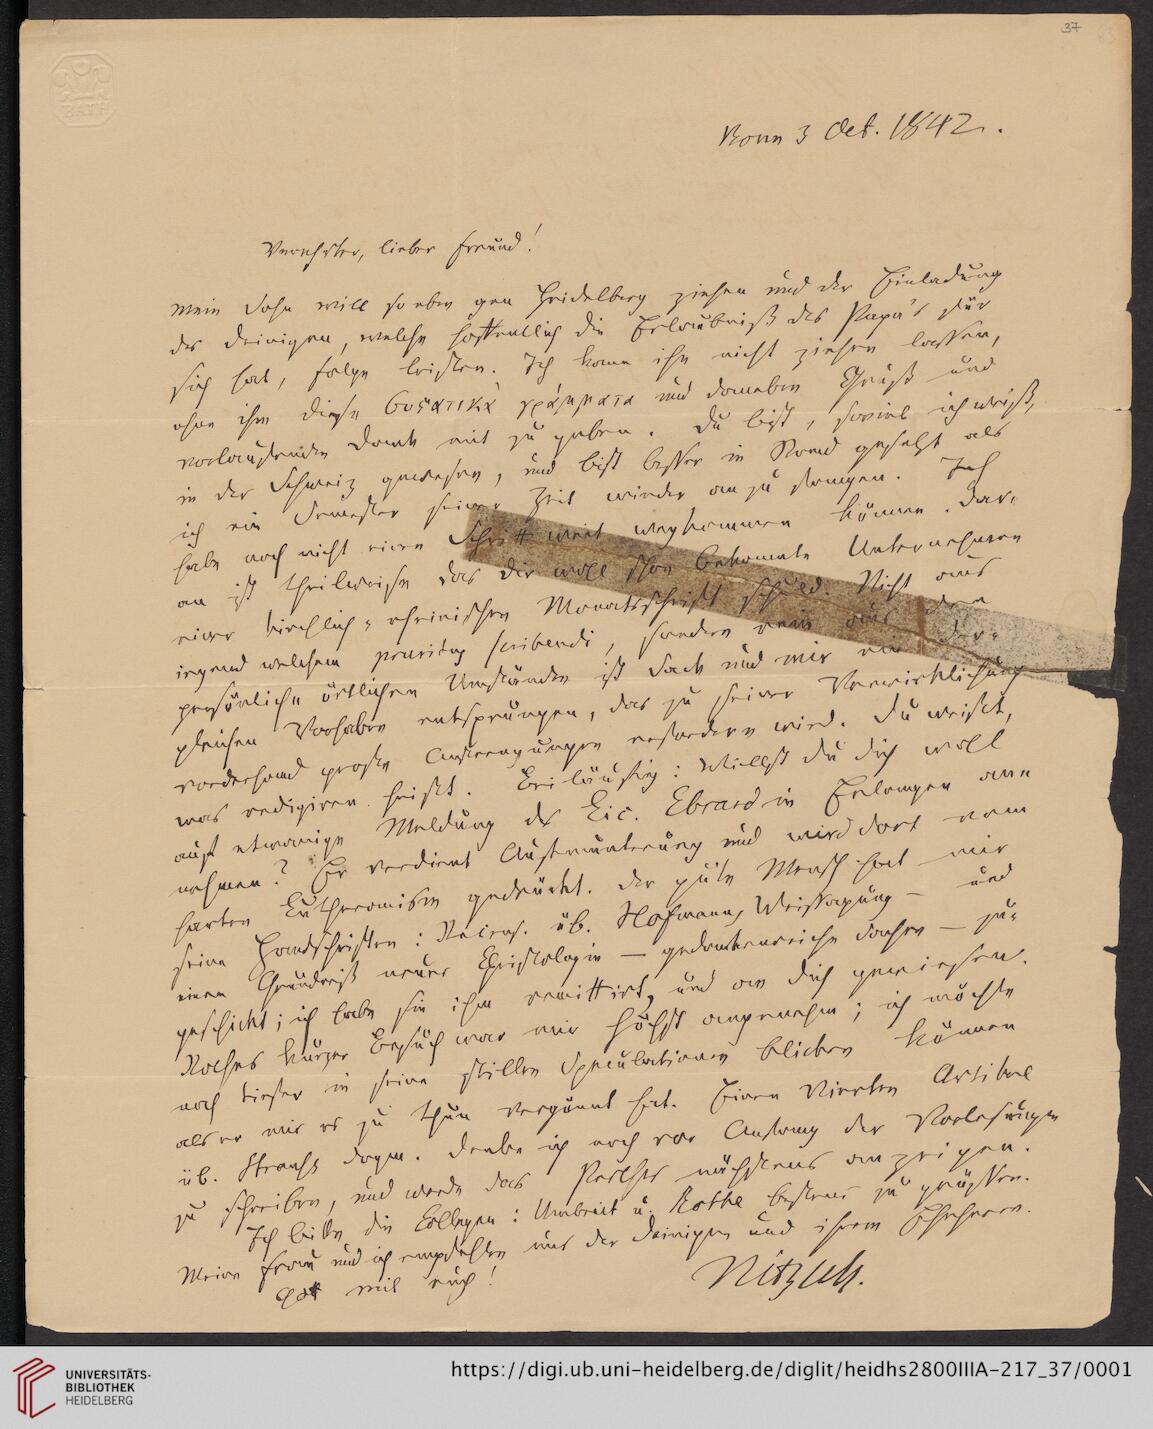 37
BATH
Bonn 3 Oct. 1842.
Verehrter, lieber Freund!
Mein Sohn will so eben gen Heidelberg ziehen und der Einladung
der Deinigen, welche hoffentlich die Erlaubniß des Papa's für
sich hat, folge leisten. Ich kann ihn nicht ziehen lassen,
ohne ihm diese συστατικὰ γράμματα und daneben Gruß und
vorläufigen Dank mit zu geben. Du bist, soviel ich weiß,
in der Schweiz gewesen, und bist besser in Stand gesetzt als
ich ein Semester seiner Zeit wieder an zu fangen. Ich
habe noch nicht einen Schritt weit wegkommen können. Dar-
an ist theilweise das dir wohl schon bekannte Unternehmen
einer kirchlich-rheinischen Monatsschrift schuld. Nicht aus
irgend welchem pruritus scribendi, sondern rein aus den
persönlich-örtlichen Umständen ist Sack und mir ein der-
gleichen Vorhaben entsprungen, das zu seiner Verwirklichung
vorderhand große Anstrengungen erfordern wird. Du weißt,
was redigiren heißt. Beiläufig: Willst du dich wohl
auf etwanige Meldung des Lic. Ebrard in Erlangen an-
nehmen? Er verdient Aufmunterung und wird dort vom
harten Lutheranism gedrückt. Der gute Mensch hat mir
seine Handschriften: Recens. üb. Hofmanns Weissagung – und
einen Grundriß neuer Christologie – gedankenreiche Sachen – zu-
geschickt; ich habe sie ihm remittirt, und an dich gewiesen.
Rothes kurzer Besuch war mir höchst angenehm; ich möchte
noch tiefer in seine stillen Speculationen blicken können
als er mir es zu thun vergönnt hat. Einen vierten Artikel
üb. Strauß dogm. denke ich noch vor Anfang der Vorlesungen
zu schreiben, und werde das nächstens anzeigen.
Ich bitte die Collegen: Umbreit u. Rothe bestens zu grüßen.
Meine Frau und ich empfehlen uns der Deinigen und ihrem
Gott mit euch!
Nitzsch.
UNIVERSITÄTS-
BIBLIOTHEK
HEIDELBERG
https://digi.ub.uni-heidelberg.de/diglit/heidhs2800IIIA-217_37/0001